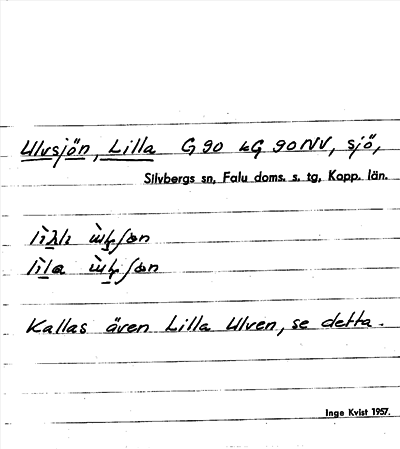 Ulvsjön, Lilla G 90 kG 90 NV, sjö,
Silvbergs sn, Falu doms. s. tg, Kopp. län.
Kallas även Lilla Ulven, se detta.
Inge Kvist 1957.